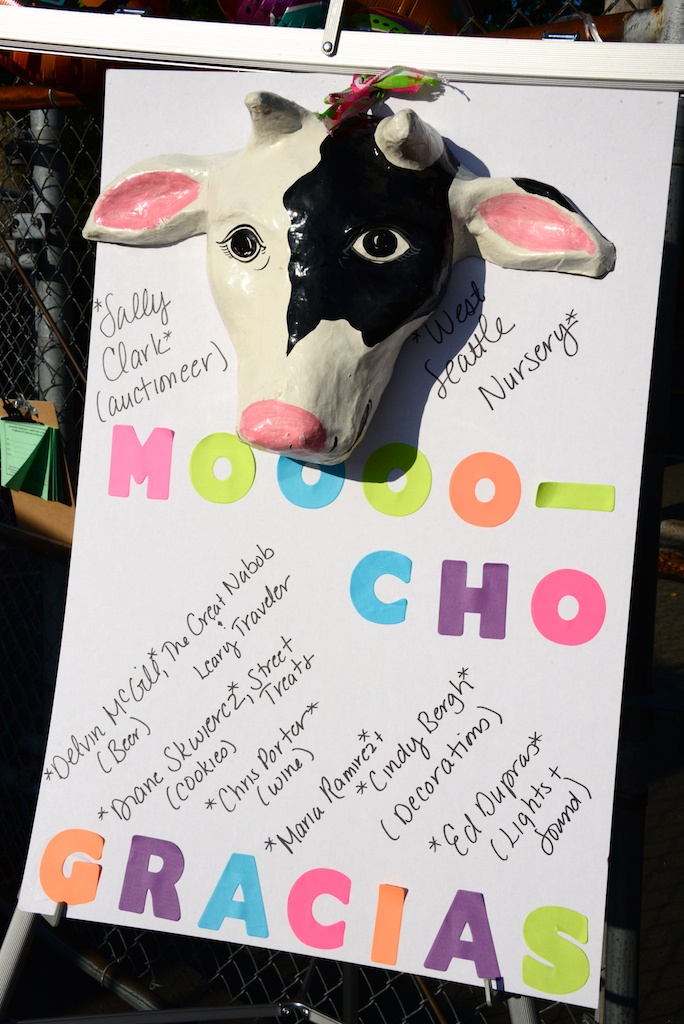 *Sally
Clark*
(auctioneer)
*West
Seattle
Nursery*
MOOOO-
CHO
*Delvin McGill*, The Great Nabob
& Leary Traveler
(Beer)
*Diane Skwiercz*, Street
Treats
(cookies)
*Chris Porter*
(wine)
*Maria Ramirez* +
*Cindy Bergh*
(Decorations)
*Ed Dupras*
(Lights +
Sound)
GRACIAS